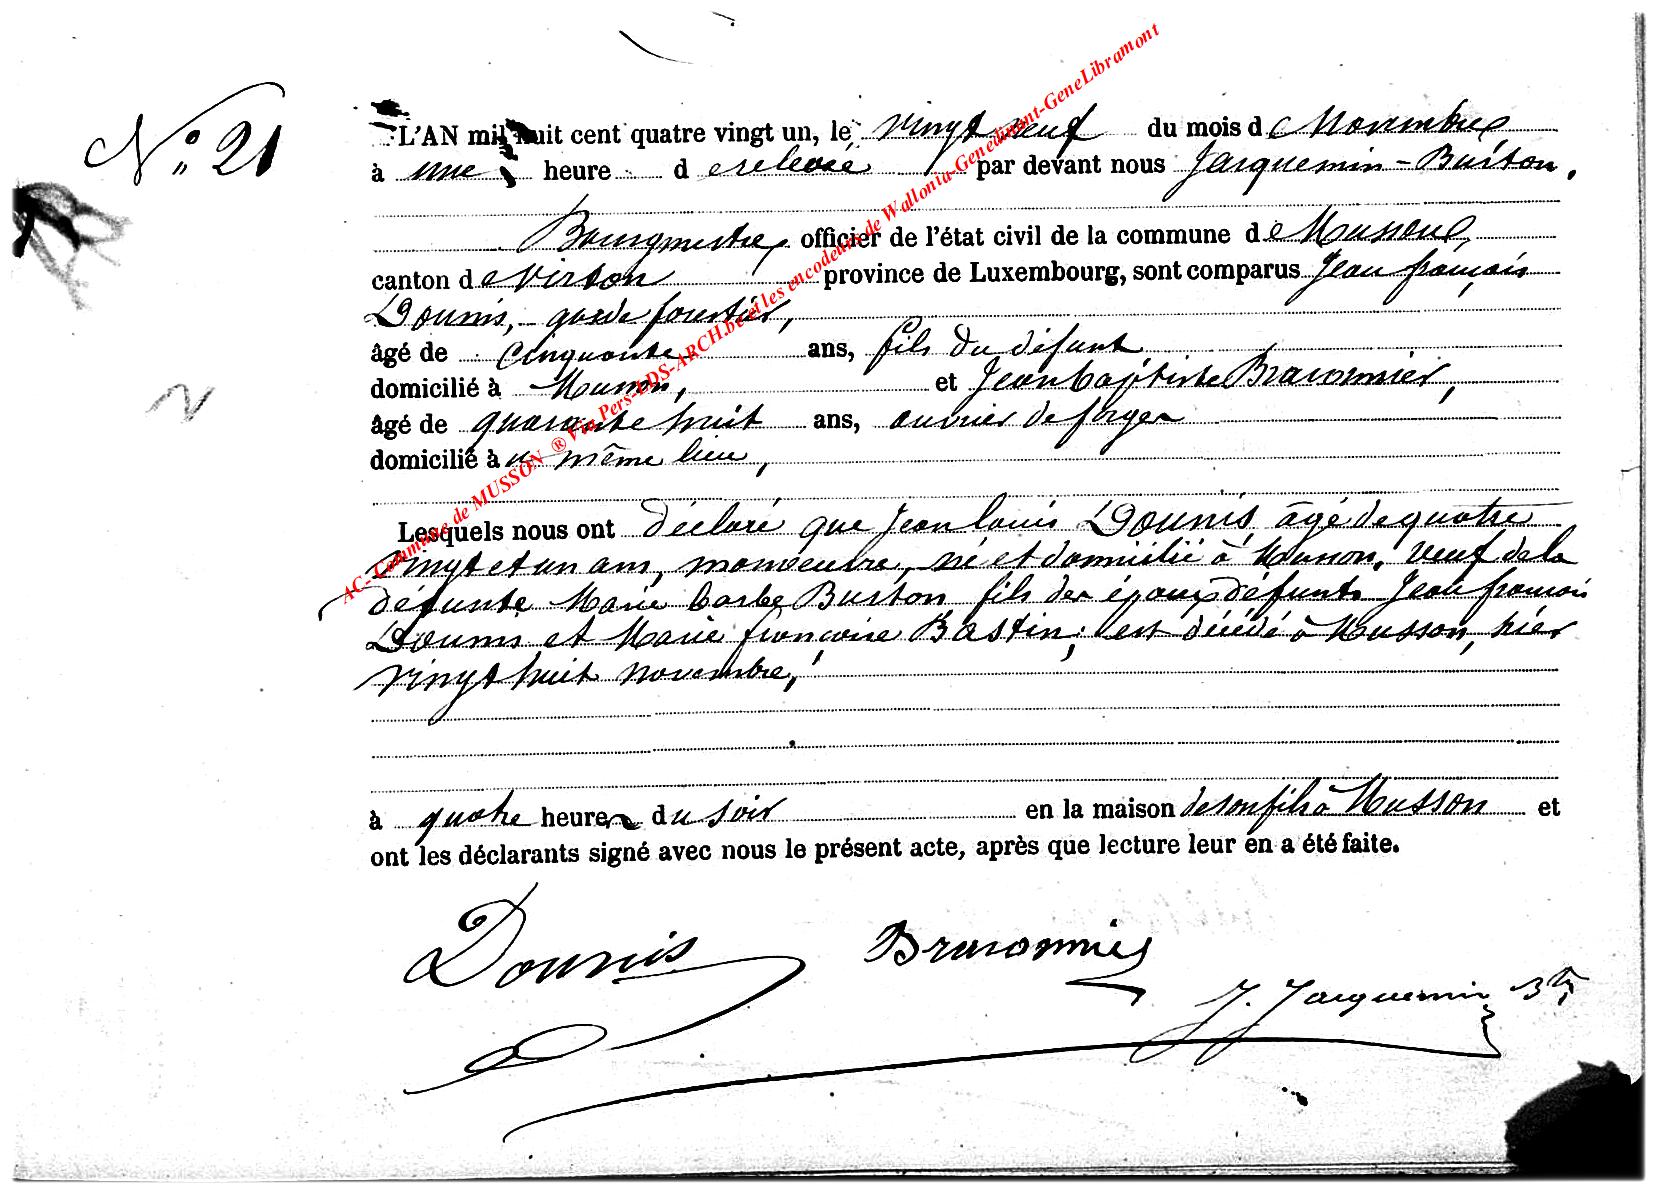 N° 21
L'AN mil huit cent quatre vingt un, le vingt neuf du mois de Novembre
à une heure de relevé par devant nous Jacquemin - Buston,
Bourgmestre officier de l'état civil de la commune de Musson,
canton de Virton province de Luxembourg, sont comparus Jean françois
Dounis, garde forestier,
âgé de cinquante ans, fils du défunt
domicilié à Musson, et Jean baptiste Braconnier,
âgé de quarante huit ans, ouvrier de forges
domicilié au même lieu,
Lesquels nous ont déclaré que Jean louis Dounis, âgé de quatre
vingt et un ans, manoeuvre, né et domicilié à Musson, veuf de la
défunte Marie barbe Buston fils des époux défunts Jean françois
Dounis et Marie françoise Bastin; est décédé à Musson, hier
vingt huit novembre,
à quatre heures du soir en la maison de son fils à Musson et
ont les déclarants signé avec nous le présent acte, après que lecture leur en a été faite.
Dounis Braconnier
J. Jacquemin Btn
AC- Commune de MUSSON ® Via Pers-LDS-ARCH.be et les encodeurs de Wallonia-Genedinant-GeneLibramont